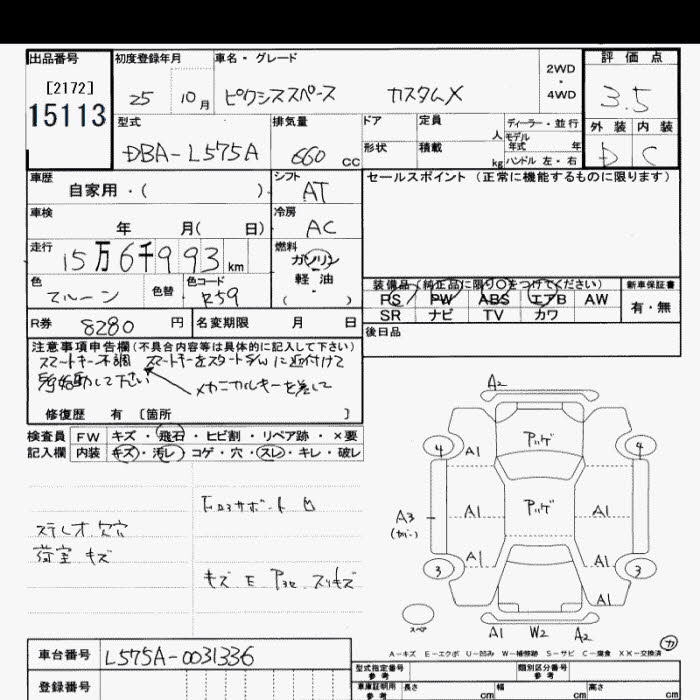 出品番号
[2172]
15113
初度登録年月
25 10月
車名・グレード
ピクシススペース カスタムX
2WD
・
4WD
評価点
3.5
外装 内装
D C
型式
DBA-L575A
排気量
660 cc
ドア 定員 人
形状 積載 kg
ディーラー・並行
モデル
年式 年
ハンドル 左・右
車歴
自家用・( )
シフト
AT
セールスポイント (正常に機能するものに限ります)
車検
年 月( 日)
冷房
AC
走行
15万6千993km
燃料
ガソリン
軽油
( )
色
マルーン
色替
色コード
R59
装備品(純正品に限り○をつけてください)
PS PW ABS エアB AW
SR ナビ TV カワ
新車保証書
有・無
R券 8280円
名変期限 月 日
後日品
注意事項申告欄(不具合内容等は具体的に記入して下さい)
スマートキー不調 スマートキーをスタートS/Wに近付けて
始動して下さい メカニカルキーを差して
修復歴 有 [箇所 ]
検査員 FW キズ・飛石・ヒビ割・リペア跡・×要
記入欄 内装 キズ・汚レ・コゲ・穴・スレ・キレ・破レ
サポート 凹
ステレオ欠穴
荷室 キズ
キズ E スリキズ
A2
4 A1 アハゲ 4
A3
A1 アハゲ A1
A1 A1
3 3
A1
スペア
A1 W2 A2
カ
A-キズ E-エクボ U-凹み W-補修跡 S-サビ C-腐食 X X-交換済
車台番号 L575A-0031336
登録番号
型式指定番号
参考
類別区分番号
参考
車庫証明用
参考
長さ cm
幅 cm
高さ cm